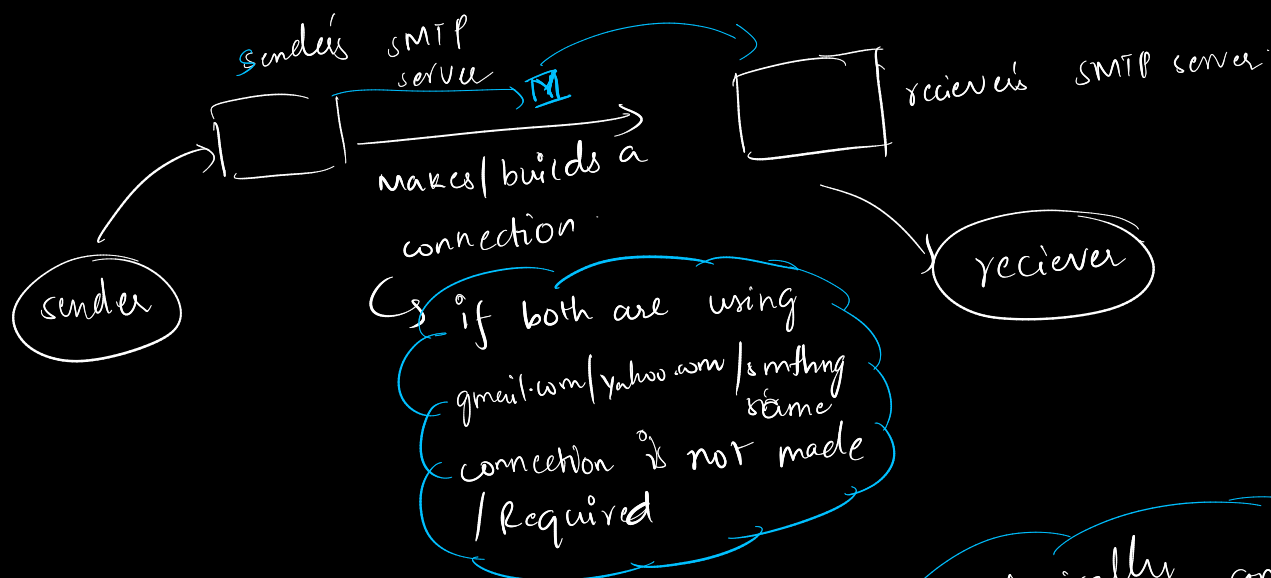 sender's SMTP
server
reciever's SMTP server
makes/builds a
connection
sender
reciever
if both are using
gmail.com/yahoo.com/smthng
same
conncetion is not made
/ Required